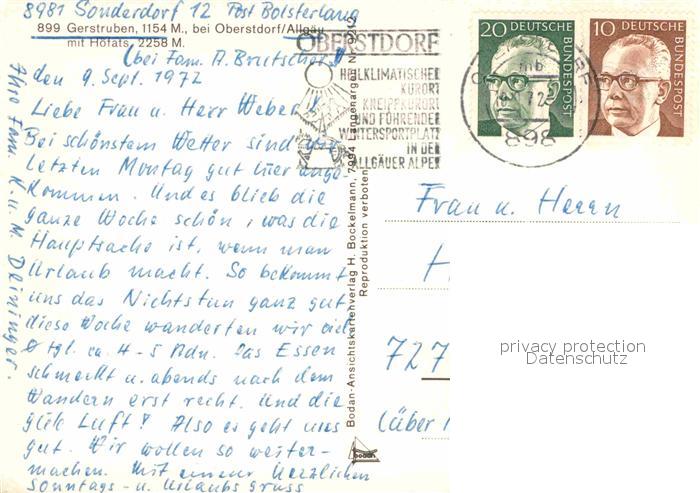 8981 Sonderdorf 12 Post Bolsterlang
899 Gerstruben, 1154 M., bei Oberstdorf/Allgäu
mit Höfats, 2258 M.
(bei Fam. A. Breitscher)
den 9. Sept. 1972
Liebe Frau u. Herr Weber!
Bei schönstem Wetter sind wir
letzten Montag gut hier ange-
kommen. Und es blieb die
ganze Woche schön, was die
Hauptsache ist, wenn man
Urlaub macht. So bekommt
uns das Nichtstun ganz gut,
diese Woche wanderten wir viel
tgl. ca. 4-5 Stdn. Das Essen
schmeckt u. abends nach dem
Wandern erst recht. Und die
gute Luft! Also es geht uns
gut. Wir wollen so weiter-
machen. Mit einem herzlichen
Sonntags- u. Urlaubsgruss
Ihre Fam. K. u. M. Deininger.
Bodan-Ansichtskartenverlag H. Bockelmann, 7994 Langenargen
Reproduktion verboten
bodan
OBERSTDORF
HEILKLIMATISCHER
KURORT
KNEIPPKURORT
UND FÜHRENDER
WINTERSPORTPLATZ
IN DEN
ALLGÄUER ALPEN
898
20 DEUTSCHE
BUNDESPOST
10 DEUTSCHE
BUNDESPOST
Frau u. Herrn
H
727
(über
privacy protection
Datenschutz